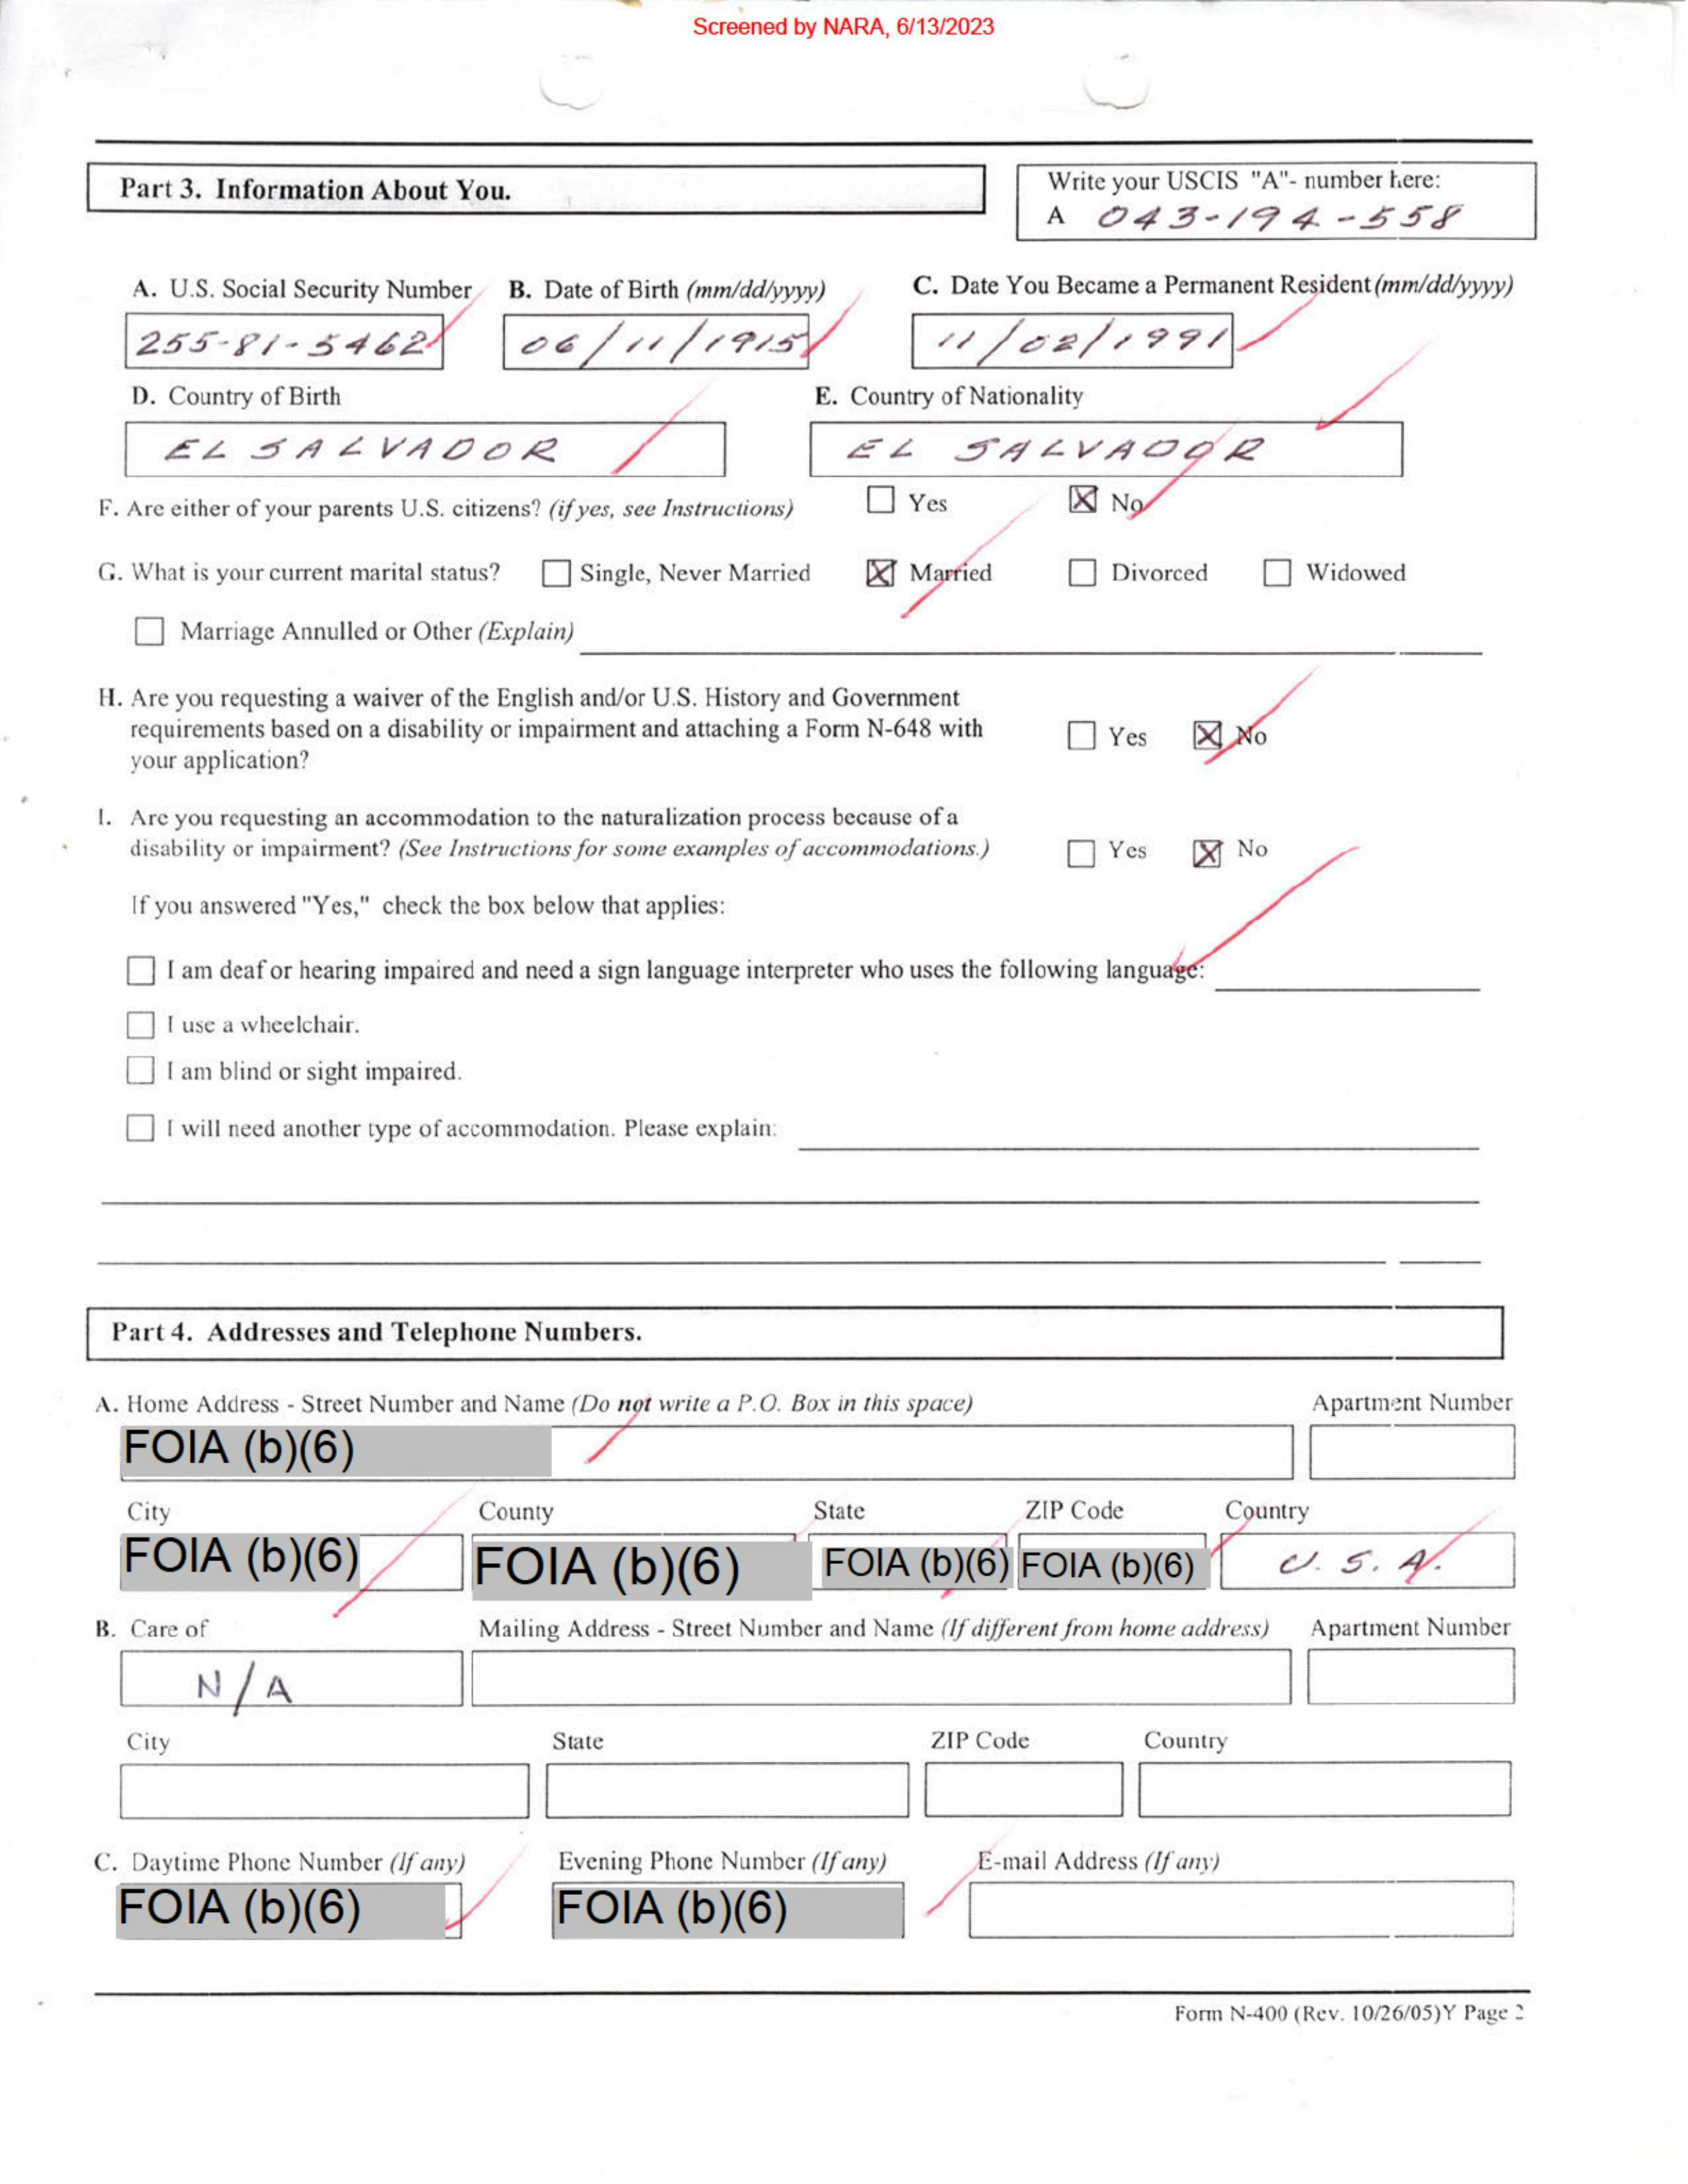 Screened by NARA, 6/13/2023
Part 3. Information About You.
Write your USCIS "A"- number here:
A 043-194-558
A. U.S. Social Security Number B. Date of Birth (mm/dd/yyyy) C. Date You Became a Permanent Resident (mm/dd/yyyy)
255-81-5462 06/11/1915 11/02/1991
D. Country of Birth E. Country of Nationality
EL SALVADOR EL SALVADOR
F. Are either of your parents U.S. citizens? (if yes, see Instructions) Yes No
G. What is your current marital status? Single, Never Married Married Divorced Widowed
Marriage Annulled or Other (Explain)
H. Are you requesting a waiver of the English and/or U.S. History and Government
requirements based on a disability or impairment and attaching a Form N-648 with Yes No
your application?
I. Are you requesting an accommodation to the naturalization process because of a
disability or impairment? (See Instructions for some examples of accommodations.) Yes No
If you answered "Yes," check the box below that applies:
I am deaf or hearing impaired and need a sign language interpreter who uses the following language:
I use a wheelchair.
I am blind or sight impaired.
I will need another type of accommodation. Please explain:
Part 4. Addresses and Telephone Numbers.
A. Home Address - Street Number and Name (Do not write a P.O. Box in this space) Apartment Number
FOIA (b)(6)
City County State ZIP Code Country
FOIA (b)(6) FOIA (b)(6) FOIA (b)(6) FOIA (b)(6) U.S.A.
B. Care of Mailing Address - Street Number and Name (If different from home address) Apartment Number
N/A
City State ZIP Code Country
C. Daytime Phone Number (If any) Evening Phone Number (If any) E-mail Address (If any)
FOIA (b)(6) FOIA (b)(6)
Form N-400 (Rev. 10/26/05)Y Page 2